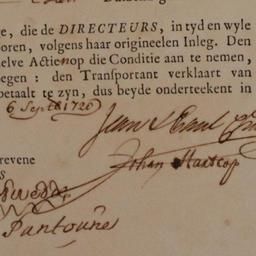 e, die de DIRECTEURS, in tyd en wyle
oren, volgens haar origineelen Inleg. Den
elve Actien op die Conditie aan te nemen,
egen: den Transportant verklaart van
betaalt te zyn, dus beyde onderteekent in
6 Sept 1720
Jean
Johan
revene
S
Pantoune